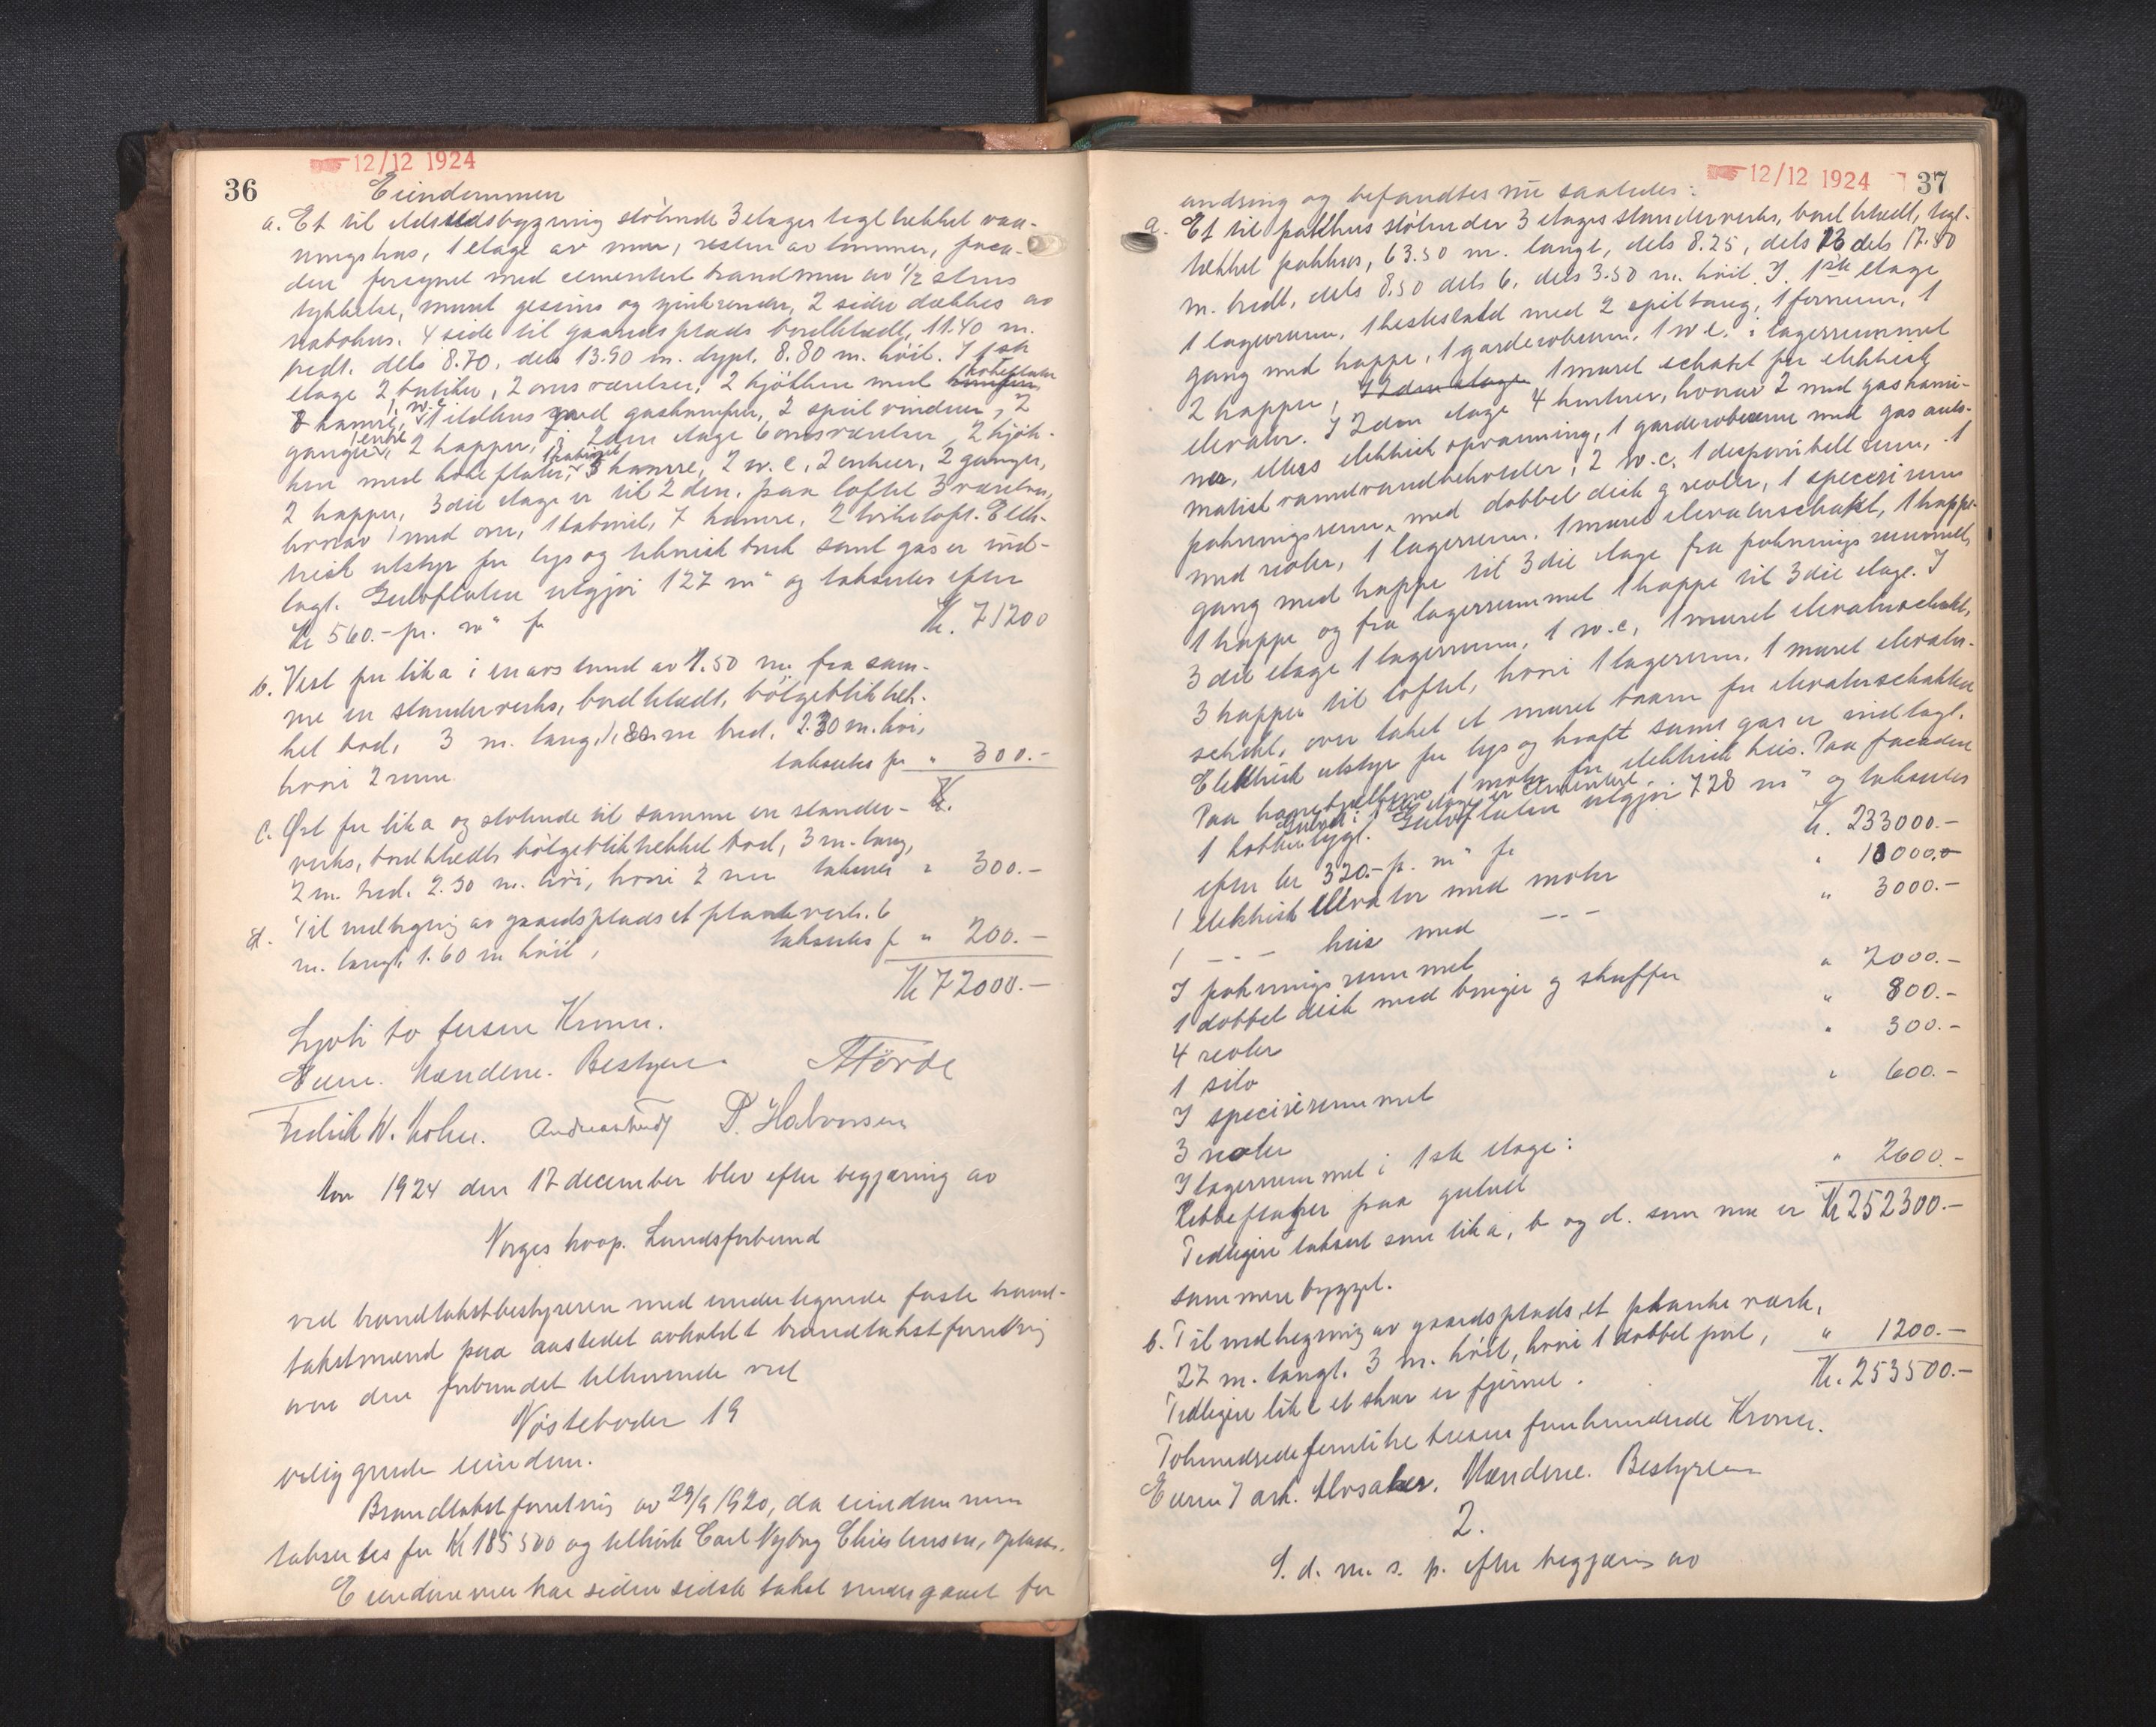 36
12/12 1924
Eiendommen
a. Et til ildstedsbygning stötende 3 etages tegltækket vaa-
ningshus, 1 etage av mur, resten av tömmer, faca-
den forsynet med cementert brandmur av 1/2 stens
tykkelse, muret gesims og zinkrender, 2 sider dækkes av
nabohus. 4 side til gaardsplads bordklædt, 11.40 m.
bredt. dels 8.70, dels 13.90 m. dypt. 8.80 m. höit. I 1ste
etage 2 butiker, 2 ovnsværelser, 2 kjökken med kokeplater
kamre, 1 w.c. 1 ildhus med gaskomfur, 2 speil vinduer, 2
ganger, 1 entre 2 trapper, i 2den etage 6 ovnsværelser, 2 kjök-
ken med kokeplater, 1 kabinet 3 kamre, 2 w.c, 2 entreer, 2 ganger,
2 trapper, 3die etage er til 2den. paa loftet 3 værelser,
hvorav 1 med ovn, 1 kabinet, 7 kamre, 2 törkeloft. Elek-
trisk utstyr for lys og teknisk bruk samt gas er ind-
lagt. Gulvflaten utgjör 127 m² og takseres efter
Kr 560.- pr. m² for Kr. 71200
b. Vest for lit a i en avstand av 1.50 m. fra sam-
me en standerverks, bordklædt, bölgebliktæk-
ket bod, 3 m. lang, 1.80 m bred, 2.30 m. höi,
hvori 2 rum. takseres for " 300.-
c. Öst for lit a og stötende til samme en stander- Kr.
verks, bordklædt bölgebliktækket bod, 3 m. lang,
2 m. bred. 2.30 m. höi, hvori 2 rum takseres " 300.-
d. Til indhegning av gaardsplads et plankeverk. 6
m. langt, 1.60 m höit, takseres for " 200.-
Kr 72000.-
Sytti to tusen Kroner.
Eiern. Mændene. Bestyreren
Fredrik W. Holm. P. Halvorsen
Aar 1924 den 12 december blev efter begjæring av
Norges koop. Landsforbund
ved brandtakstbestyreren med undertegnede faste brand-
takstmænd paa aastedet avholdt brandtakstforretning
over den forbundet tilhörende ved
Nösteboder 19
beliggende eiendom.
Brandtakstforretning av 29/9 1920, da eiendommen
taksertes for Kr 185500 og tilhörte Carl Nyborg Christensen, oplæstes.
Eiendommen har siden sidste takst undergaaet for
12/12 1924
37
andring og befandtes nu saaledes:
a. Et til pakhus stötende 3 etages standerverks, bordklædt, tegl-
tækket pakhus, 63.50 m. langt, dels 8.25, dels 13 dels 17.80
m. bredt, dels 8.50 dels 6, dels 3.50 m. höit. I 1ste etage
1 lagerrum, 1 hestestald med 2 spiltaug, 1 forrum, 1
gang med trappe, 1 garderoberum, 1 w c. i lagerrummet
2 trapper, I 2den etage 1 muret schakt for elektrisk
elevator. I 2den etage 4 kontorer, hvorav 2 med gaskami-
ner, ellers elektrisk opvarmning, 1 garderoberum med gas auto-
matisk varmtvandbeholder, 2 w.c, 1 disponibelt rum, 1
pakningsrum, med dobbel disk og reoler, 1 speceri rum
med reoler, 1 lagerrum, 1 muret elevatorschakt, 1 trappe-
gang med trappe til 3die etage fra paknings rummet,
1 trappe og fra lagerrummet 1 trappe til 3die etage. I
3die etage 1 lagerrum, 1 w.c, 1 muret elevatorschakt,
3 trapper til loftet, hvori 1 lagerum, 1 muret elevator-
schakt, over taket et muret taarn for elevatorschakten
Elektrisk utstyr for lys og kraft samt gas er indlagt.
Paa hanebjelkene 1 motor for elektrisk heis. Paa facaden
1 kobbertygl. Gulvet i 1ste etage er cementert. Gulvflaten utgjör 728 m² og takseres
efter kr 320.- pr. m² for Kr. 233000.-
1 elektrisk elevator med motor " 10000.-
1 - - - heis med - - - " 3000.-
I pakningsrummet
1 dobbel disk med binger og skuffer " 2000.-
4 reoler " 800.-
1 silo " 300.-
I specerirummet
3 reoler " 600.-
I lagerrummet i 1ste etage:
Ribbeflager paa gulvet " 2600.-
Kr 252300.-
Tidligere taksert som lit a, b og d. som nu er
sammenbygget.
b. Til indhegning av gaardsplads, et planke værk,
27 m. langt. 3 m. höit, hvori 1 dobbel port, " 1200.-
Tidligere lit c et skur er fjernet. Kr. 253500.-
Tohundredefemtitre tusen femhundrede Kroner.
Eieren 7 ark. Alvsaker. Mændene. Bestyreren
2.
S. d. m. s. p. efter begjæring av